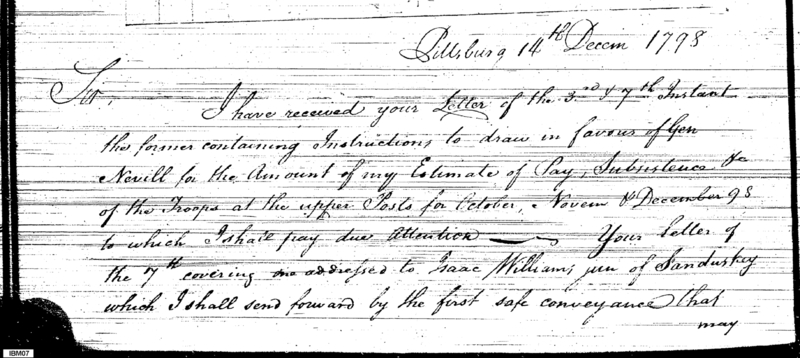 Pittsburg 14th Decem 1798
Sir,
I have received your Letter of the 3rd & 7th Instant
the former containing Instructions to draw in favour of Gen
Nevill for the Amount of my Estimate of Pay, Subsistence &c
of the Troops at the upper Posts for October, Novem & December 98
to which I shall pay due Attention — Your Letter of
the 7th covering one addressed to Isaac Williams jun of Sandusky
which I shall send forward by the first safe conveyance that
may
IBM07